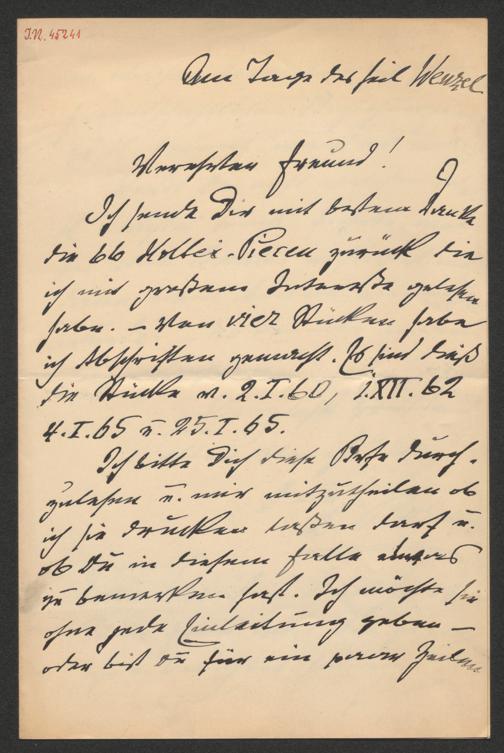 I.N. 45241
Am Tage des heil Wenzel
Verehrter Freund!
Ich sende Dir mit bestem Danke
die 66 Holtei-Piecen zurück die
ich mit großem Interesse gelesen
habe. – Von vier Stücken habe
ich Abschriften gemacht. Es sind dieß
die Stücke v. 2.I.60, 1.XII.62
4.I.65 u. 25.I.65.
Ich bitte Dich diese Briefe durch-
zulesen u. mir mitzutheilen ob
ich sie drucken laßen darf u.
ob Du in diesem Falle etwas
zu bemerken hast. Ich möchte sie
ohne jede Einleitung geben –
oder bist Du für ein paar Zeilen